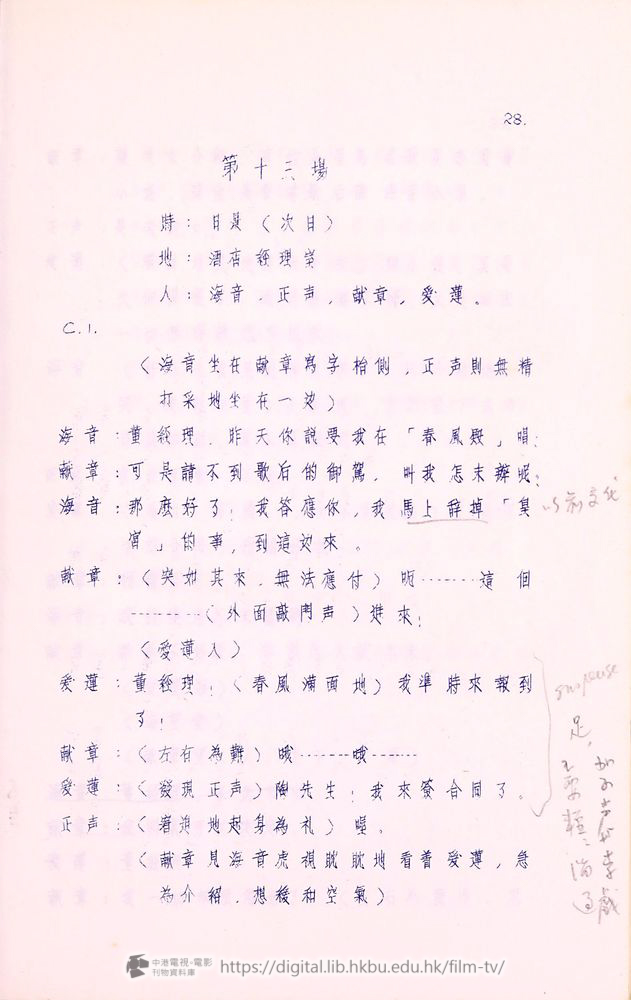 28.
第十三場
時：日是（次日）
地：酒店經理室
人：海音．正声，献章，愛蓮。
C.1.
（海音坐在献章寫字枱側，正声則無精
打采地坐在一边）
海音：董經理．昨天你說要我在「春風殿」唱；
献章：可是請不到歌后的御駕，叫我怎末辦呢；
海音：那麼好了！我答應你，我馬上辞掉「皇
宮」的事，到這边來。
以前交代
献章：（突如其來．無法應付）呃……這個
………（外面敲門声）進來；
（愛蓮入）
愛蓮：董經理！（春風滿面地）我準時來報到
了！
suspense
献章：（左右為難）哦……哦……
愛蓮：（發現正声）陶先生！我來簽合同了。
正声：（着迫地起身為礼）喔。
（献章見海音虎視眈眈地看着愛蓮，急
為介紹．想緩和空氣）
中港電視·電影
刊物資料庫
https://digital.lib.hkbu.edu.hk/film-tv/